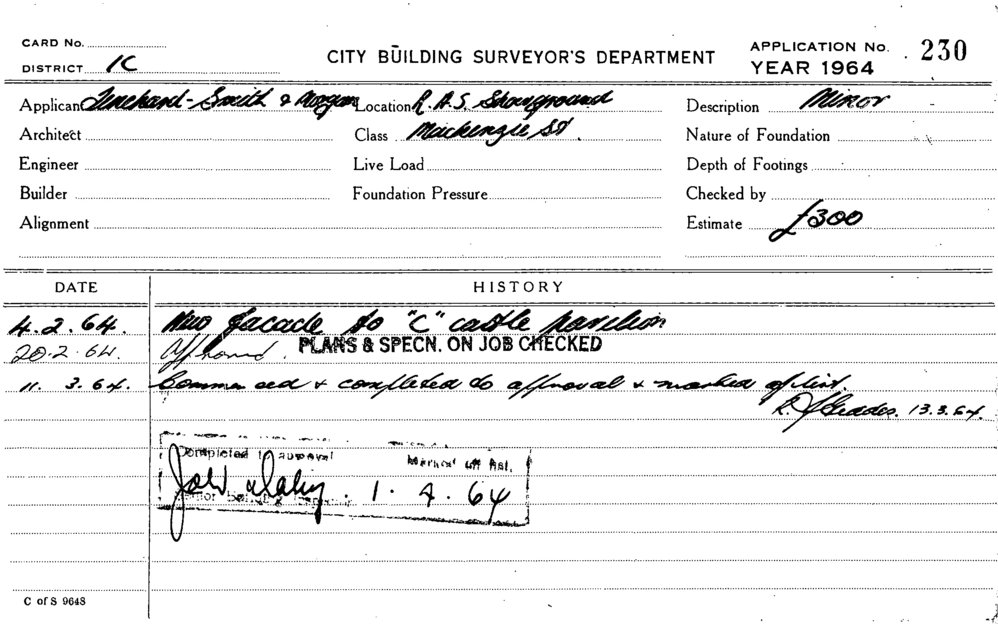 CARD No.
DISTRICT 1C
CITY BUILDING SURVEYOR'S DEPARTMENT
APPLICATION No. 230
YEAR 1964
Applicant - Smith & Morgan Location R.A.S. Showground Description Minor
Architect Class Mackenzie St. Nature of Foundation
Engineer Live Load Depth of Footings
Builder Foundation Pressure Checked by
Alignment Estimate £300
DATE HISTORY
4.2.64. New facade to "C" cattle pavilion
20.2.64. Approved. PLANS & SPECN. ON JOB CHECKED
11. 3.64. Commenced & completed to approval & marked off list.
13.3.64.
Completed to approval Marked off list.
1.4.64
Building
C of S 9648